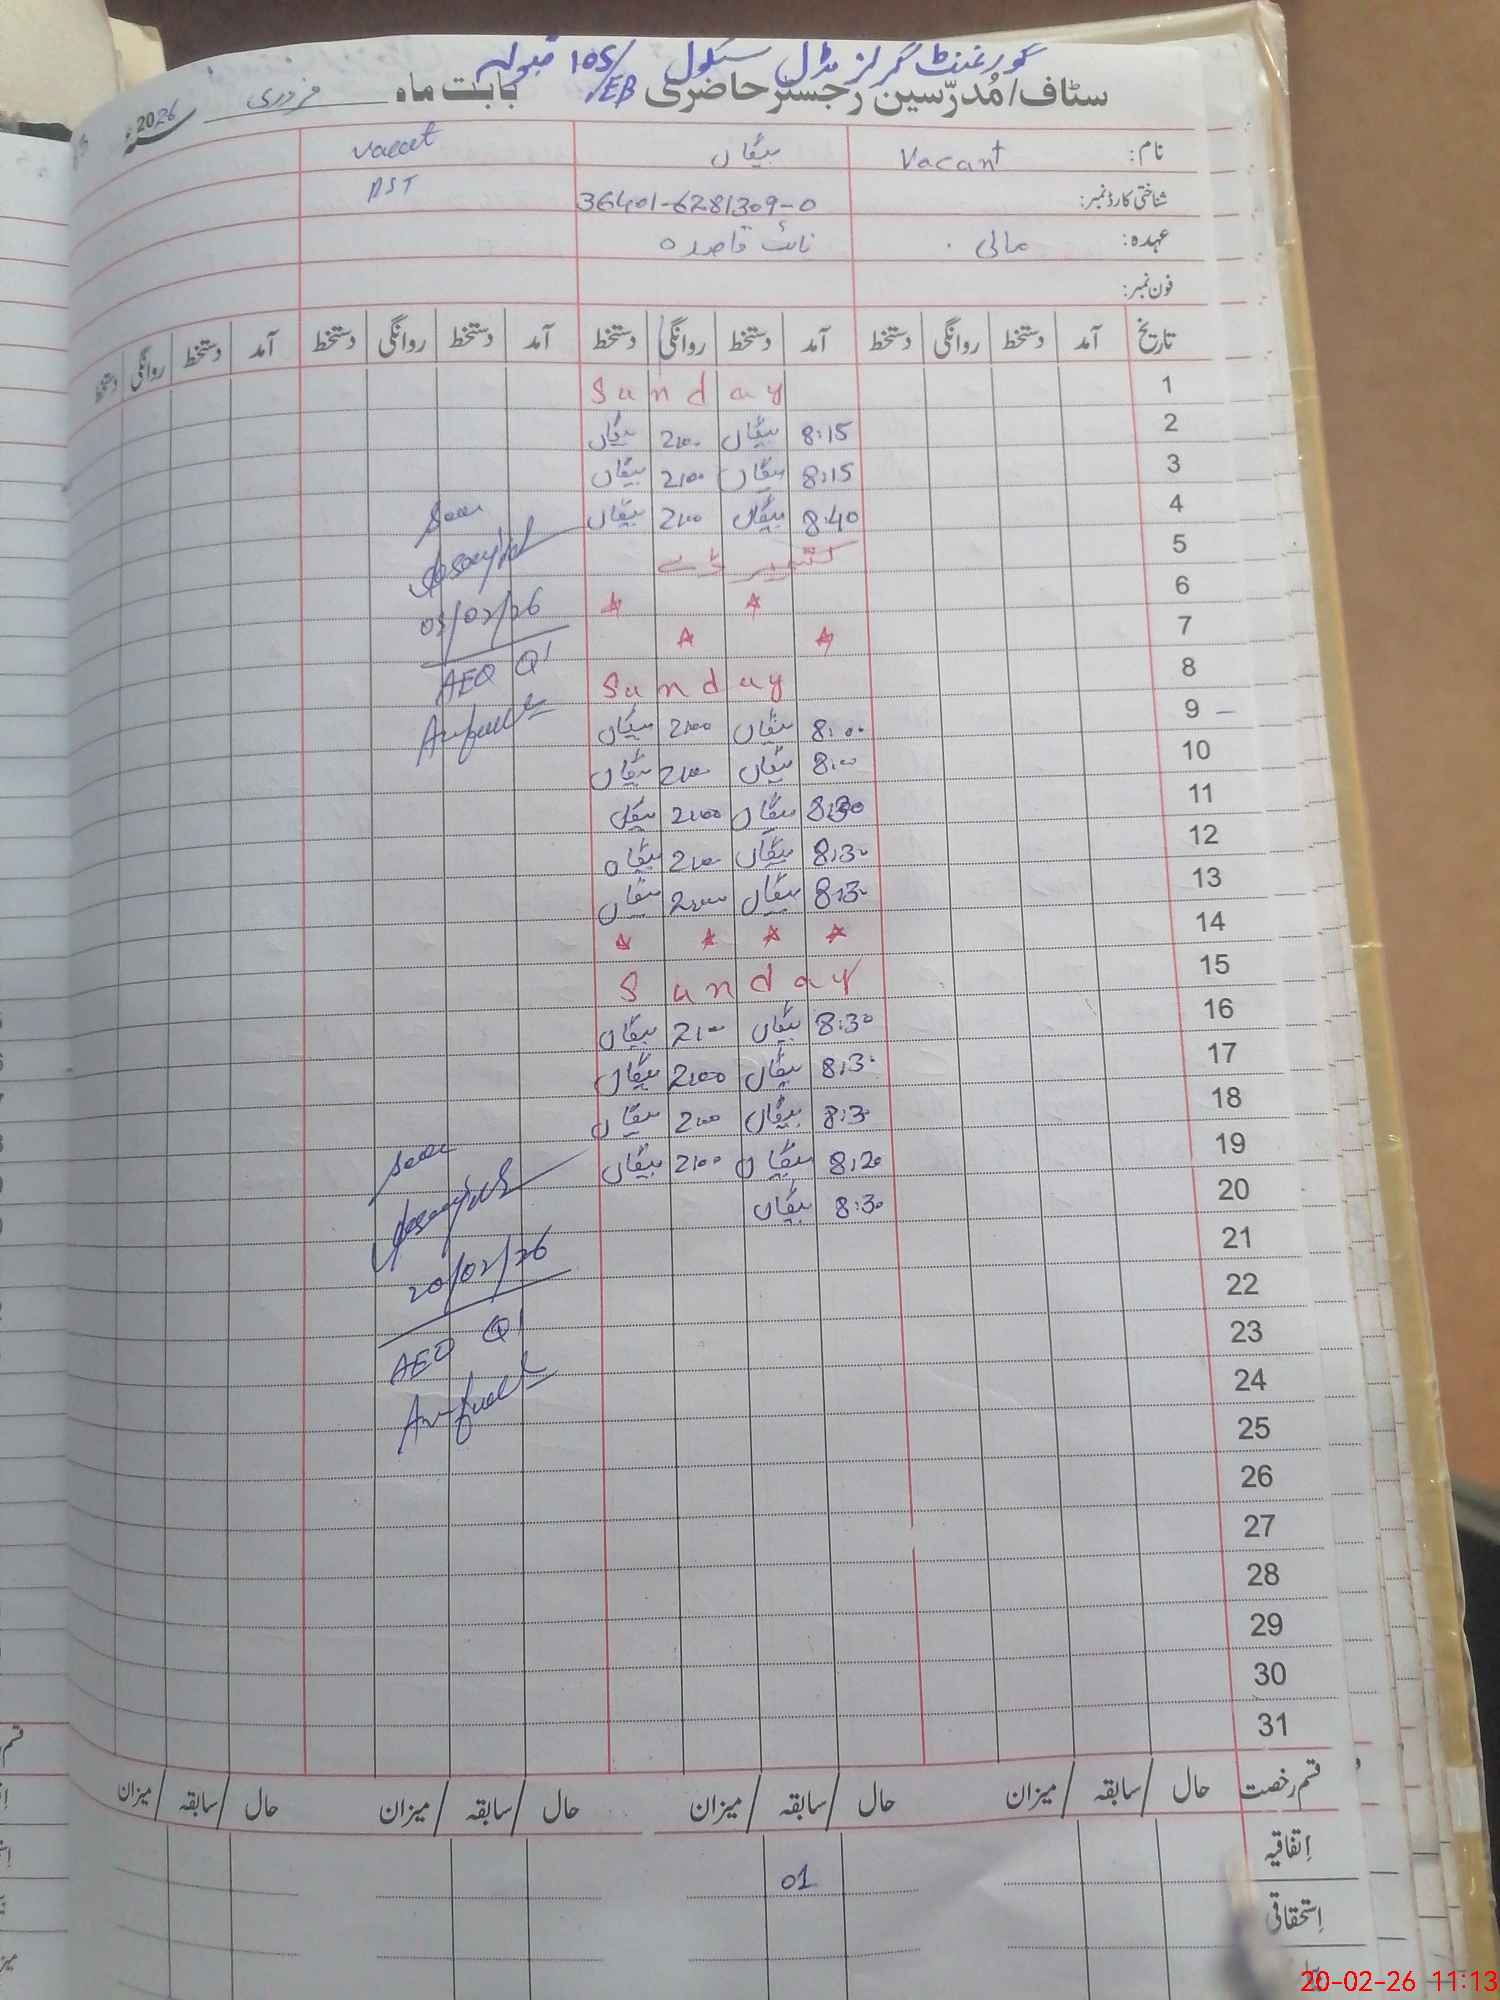 گورنمنٹ گرلز مڈل سکول 105/EB قبولہ
سٹاف/مُدرّسین رجسٹر حاضری بابت ماہ فروری 2026ء
نام: Vacant بیگاں Vacat
شناختی کارڈ نمبر: 36401-6281309-0 PST
عہدہ: مالی نائب قاصدہ
فون نمبر:
تاریخ آمد دستخط روانگی دستخط آمد دستخط روانگی دستخط آمد دستخط روانگی دستخط آمد دستخط روانگی دستخط
1 Sunday
2 8:15 بیگاں 2:00 بیگاں
3 8:15 بیگاں 2:00 بیگاں
4 8:40 بیگاں 2:00 بیگاں Seen
5 کشمیر ڈے
6 03/02/26
7
8 Sunday AEO
9 8:00 بیگاں 2:00 بیگاں
10 8:00 بیگاں 2:00 بیگاں
11 8:30 بیگاں 2:00 بیگاں
12 8:30 بیگاں 2:00 بیگاں
13 8:30 بیگاں 2:00 بیگاں
14
15 Sunday
16 8:30 بیگاں 2:00 بیگاں
17 8:30 بیگاں 2:00 بیگاں
18 8:30 بیگاں 2:00 بیگاں
19 8:20 بیگاں 2:00 بیگاں Seen
20 8:30 بیگاں
21 20/02/26
22
23 AEO
24
25
26
27
28
29
30
31
قسم رخصت حال/سابقہ/میزان حال/سابقہ/میزان حال/سابقہ/میزان حال/سابقہ/میزان
اِتفاقیہ 01
اِستحقاقی
20-02-26 11:13